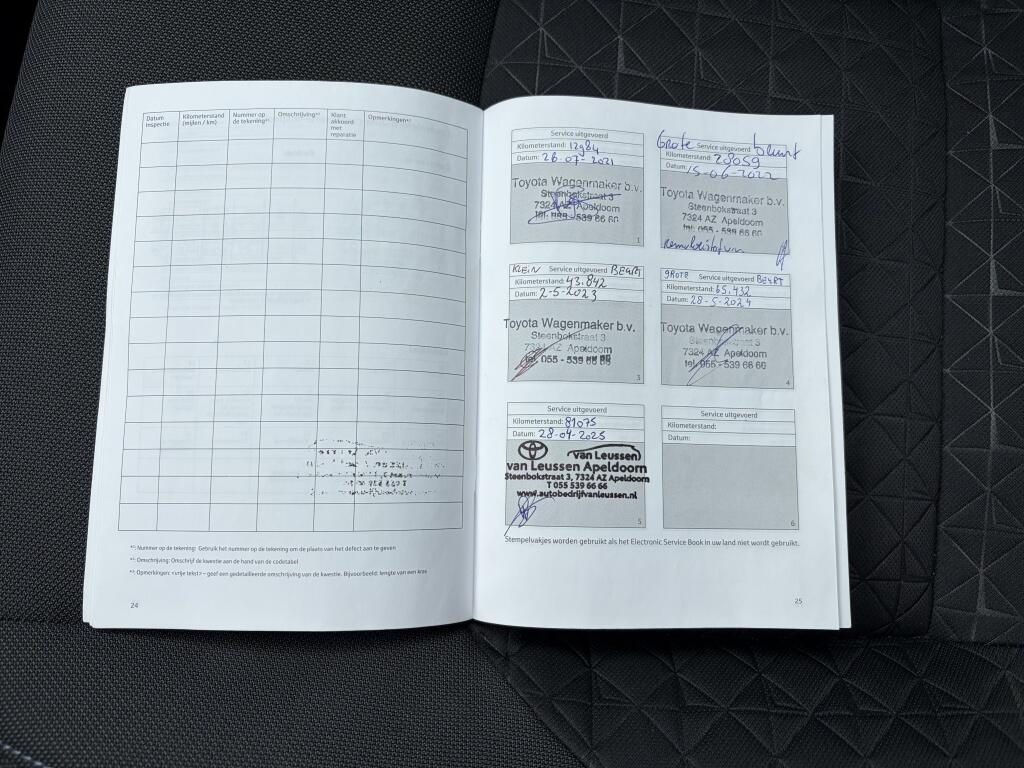 Datum inspectie
Kilometerstand (mijlen / km)
Nummer op de tekening*¹
Omschrijving*²
Klant akkoord met reparatie
Opmerkingen*³
*¹: Nummer op de tekening: Gebruik het nummer op de tekening om de plaats van het defect aan te geven
*²: Omschrijving: Omschrijf de kwestie aan de hand van de codetabel
*³: Opmerkingen: <vrije tekst> – geef een gedetailleerde omschrijving van de kwestie. Bijvoorbeeld: lengte van een kras
24
Service uitgevoerd
Kilometerstand: 12984
Datum: 26-07-2021
Toyota Wagenmaker b.v.
Steenbokstraat 3
7324 AZ Apeldoorn
tel. 055 - 539 66 66
1
Grote Service uitgevoerd beurt
Kilometerstand: 28059
Datum: 15-06-2022
Toyota Wagenmaker b.v.
Steenbokstraat 3
7324 AZ Apeldoorn
tel. 055 - 539 66 66
Remvloeistof
KLEIN Service uitgevoerd BEURT
Kilometerstand: 43.842
Datum: 2-5-2023
Toyota Wagenmaker b.v.
Steenbokstraat 3
7324 AZ Apeldoorn
tel. 055 - 539 66 66
3
GROTE Service uitgevoerd BEURT
Kilometerstand: 65.432
Datum: 28-5-2024
Toyota Wagenmaker b.v.
Steenbokstraat 3
7324 AZ Apeldoorn
tel. 055 - 539 66 66
4
Service uitgevoerd
Kilometerstand: 81075
Datum: 28-04-2025
van Leussen
van Leussen Apeldoorn
Steenbokstraat 3, 7324 AZ Apeldoorn
T 055 539 66 66
www.autobedrijfvanleussen.nl
5
Service uitgevoerd
Kilometerstand:
Datum:
6
Stempelvakjes worden gebruikt als het Electronic Service Book in uw land niet wordt gebruikt.
25